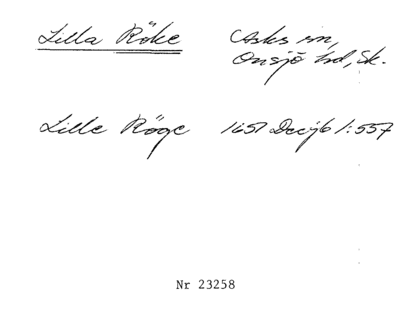 Lilla Röke Asks sn,
Onsjö hd, Sk.
Lille Röge 1651 Decjb 1:557
Nr 23258